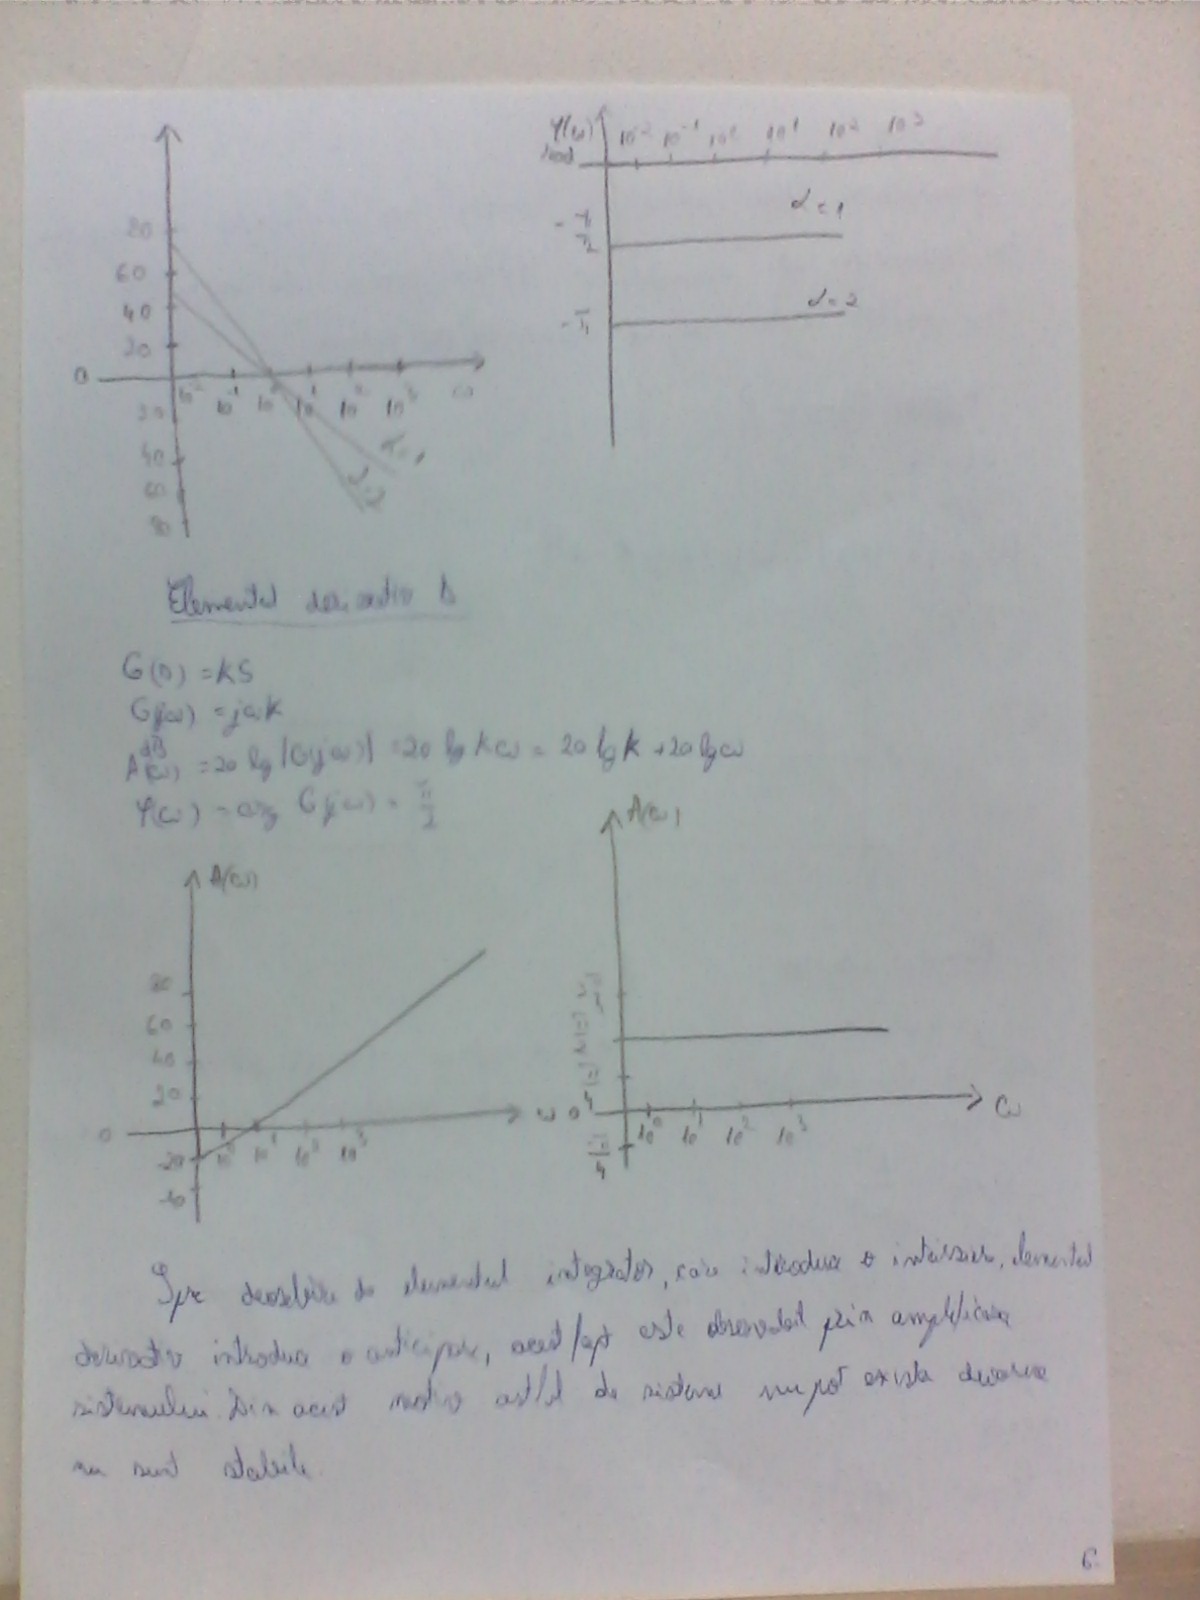 φ(ω)
rad
10⁻² 10⁻¹ 10⁰ 10¹ 10² 10³
-π/2
α=1
-π
α=2
80
60
40
20
0
10⁻² 10⁻¹ 10⁰ 10¹ 10² 10³ ω
20
40
60
80
α=1
α=2
Elementul derivativ D
G(s) = kS
G(jω) = jωk
A(ω)^dB = 20 lg |G(jω)| = 20 lg kω = 20 lg k + 20 lg ω
φ(ω) = arg G(jω) = π/2
A(ω)
80
60
40
20
0
-20
-40
10⁰ 10¹ 10² 10³
ω
A(ω)
0
π/4
10⁰ 10¹ 10² 10³
ω
Spre deosebire de elementul integrator, care introduce o intarziere, elementul
derivativ introduce o anticipare, acest fapt este observabil prin amplificarea
sistemului. Din acest motiv astfel de sisteme nu pot exista deoarece
nu sunt stabile.
6.